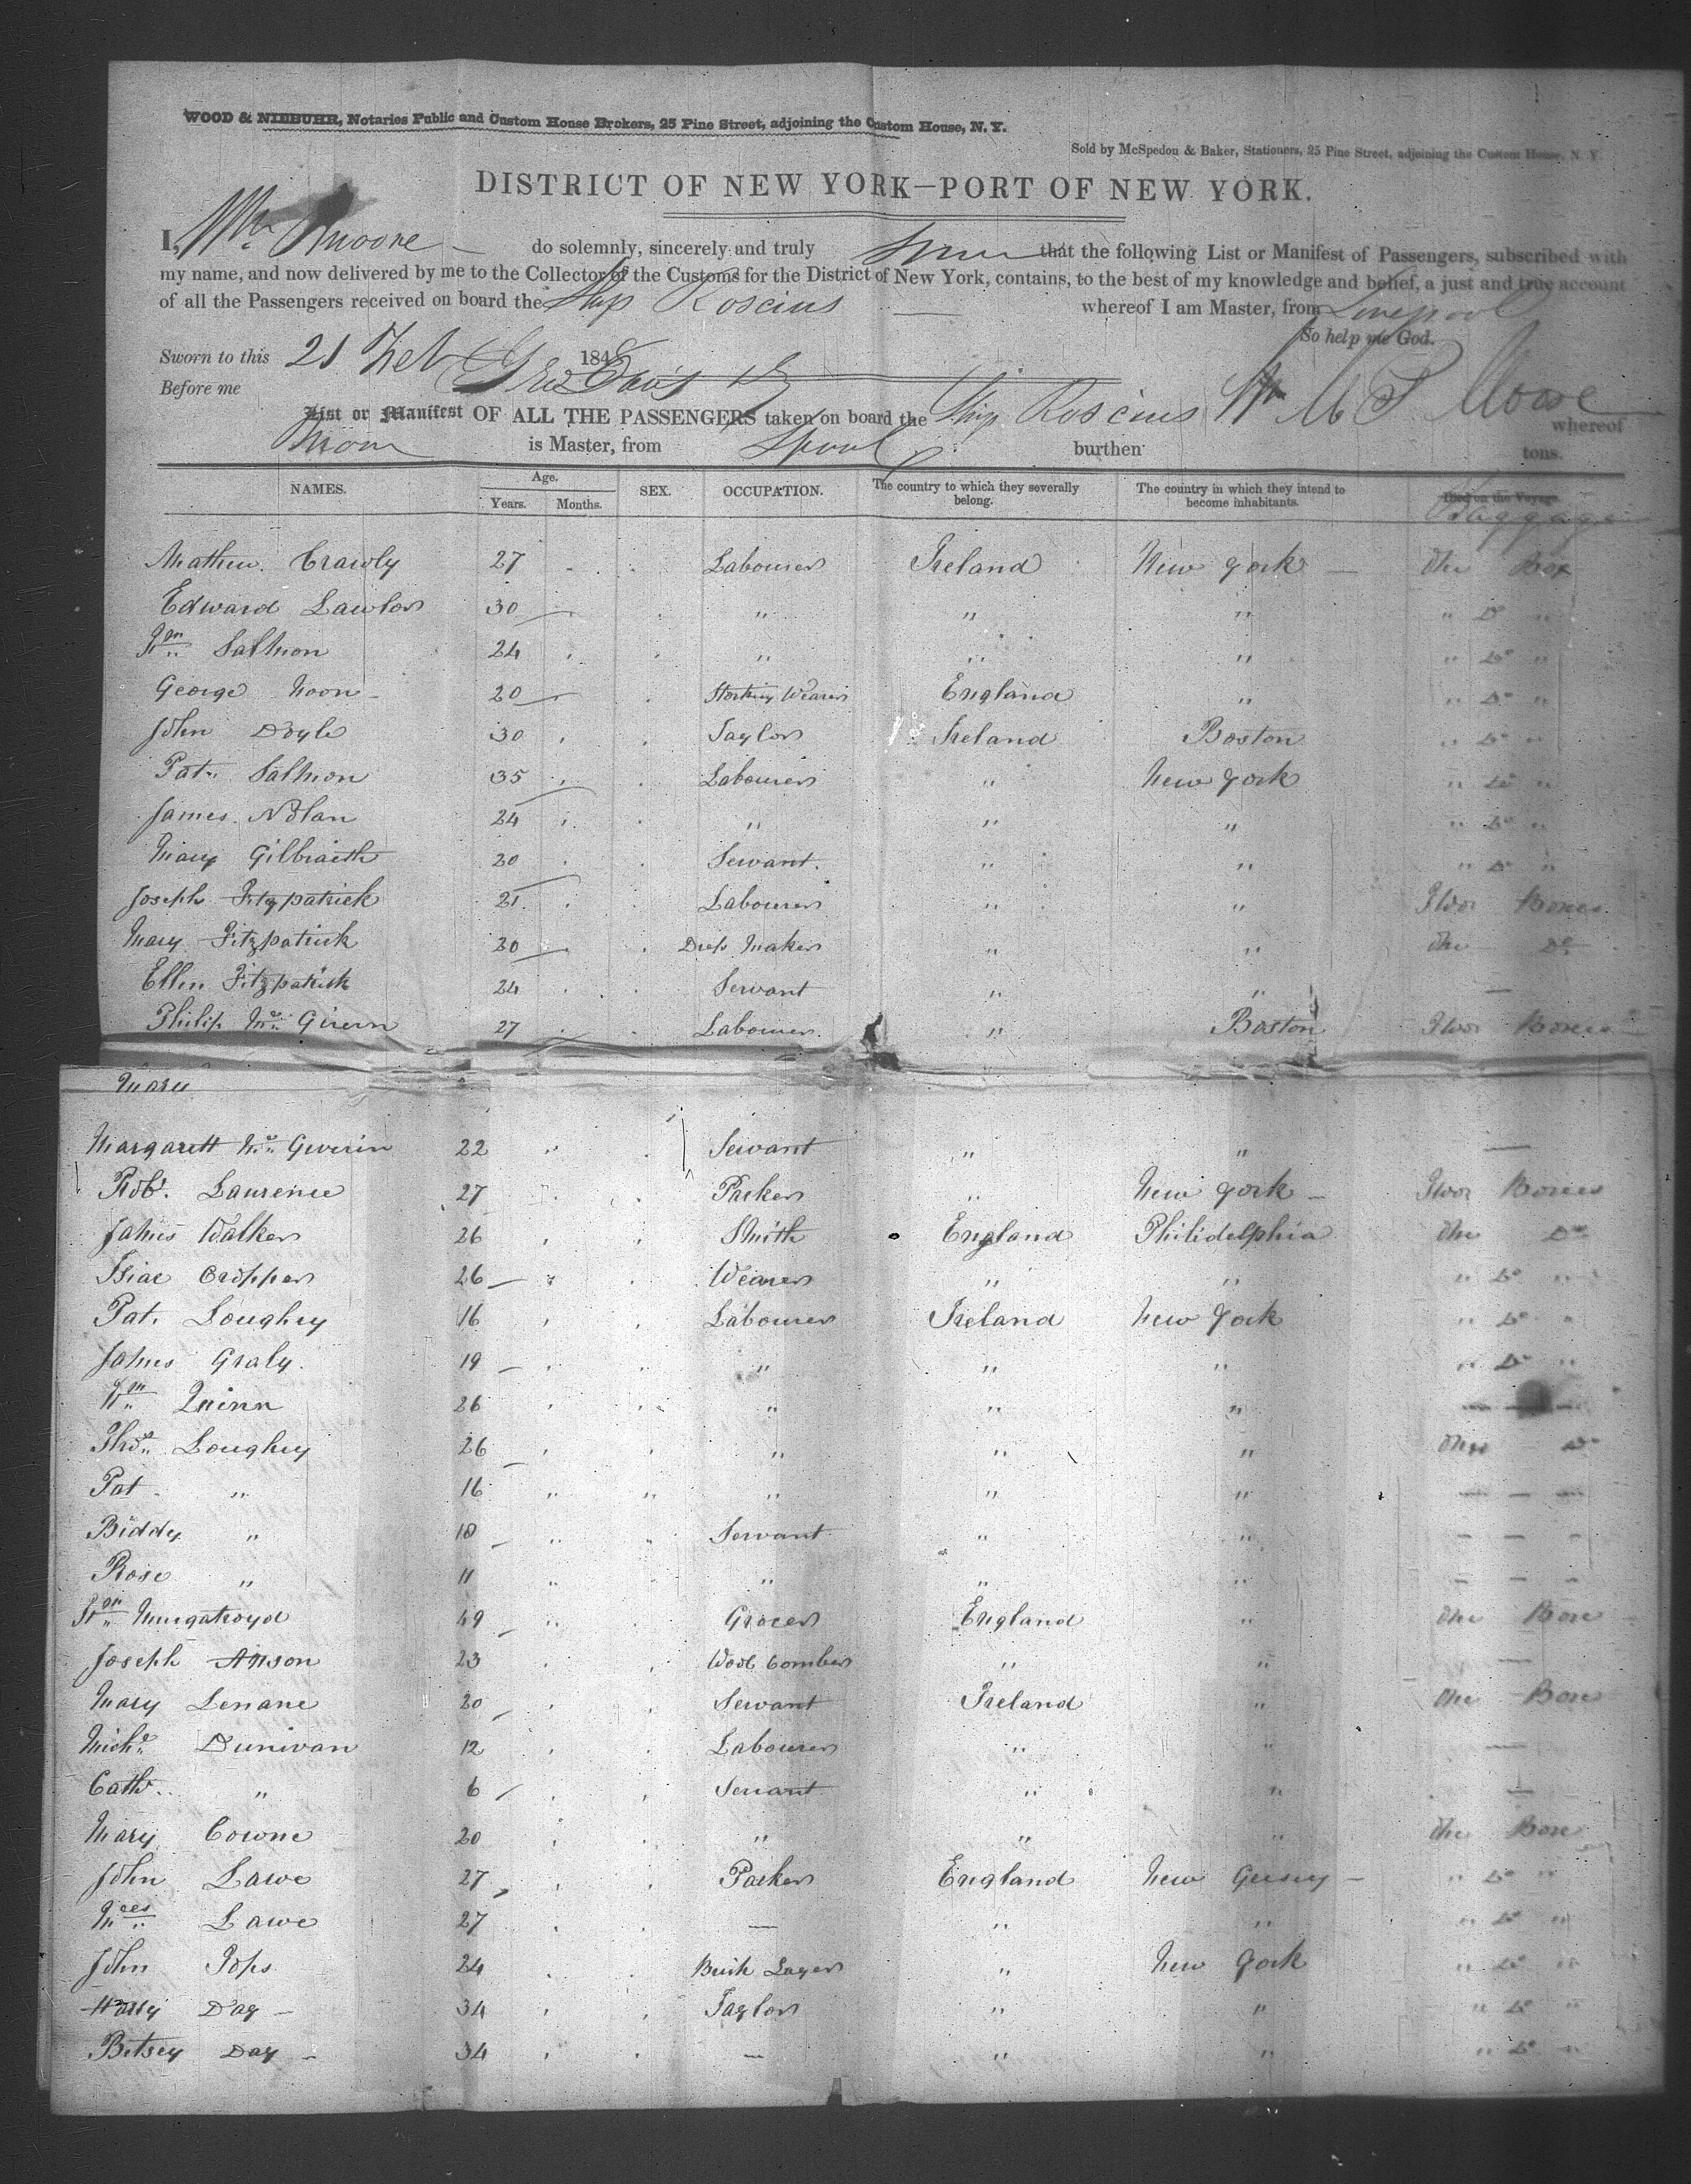 WOOD & NIEBUHR, Notaries Public and Custom House Brokers, 25 Pine Street, adjoining the Custom House, N. Y.
Sold by McSpedon & Baker, Stationers, 25 Pine Street, adjoining the Custom House, N. Y.
DISTRICT OF NEW YORK—PORT OF NEW YORK.
I, Moore do solemnly, sincerely and truly that the following List or Manifest of Passengers, subscribed with
my name, and now delivered by me to the Collector of the Customs for the District of New York, contains, to the best of my knowledge and belief, a just and true account
of all the Passengers received on board the Ship Roscius whereof I am Master, from Liverpool
So help me God.
Sworn to this 21 Feb 1848
Before me
List or Manifest OF ALL THE PASSENGERS taken on board the Ship Roscius whereof
Moore is Master, from Lpool burthen tons.
NAMES. Age. Years. Months. SEX. OCCUPATION. The country to which they severally belong. The country in which they intend to become inhabitants. Died on the Voyage. Baggage
Mathew Crawly 27 Labourer Ireland New York One Box
Edward Lawlor 30 " " " " Do "
Wm Salmon 24 " " " " Do "
George Noon 20 Stocking Weaver England " " Do "
John Doyle 30 Taylor Ireland Boston " Do "
Pat. Salmon 35 Labourer " New York " Do "
James Nolan 24 " " " " Do "
Mary Gilbraith 20 Servant " " " Do "
Joseph Fitzpatrick 21 Labourer " " Two Boxes
Mary Fitzpatrick 20 Dress Maker " " One Do
Ellen Fitzpatrick 24 Servant " " —
Philip Mc Givern 27 Labourer " Boston Two Boxes
Mary
Margarett Mc Giverin 22 Servant " " —
Robt. Laurence 27 Packer " New York Two Boxes
James Walker 26 Smith England Philidelphia One Do
Isiac Cropper 26 Weaver " " " Do "
Pat. Loughry 16 Labourer Ireland New York " Do "
James Graly 19 " " " " Do "
Wm Quinn 26 " " " — — —
Thos. Loughry 26 " " " One Do
Pat " 16 " " " — — —
Biddy " 18 Servant " " — — —
Rose " 11 " " " — — —
Wm Murgatroyd 49 Grocer England " One Box
Joseph Anson 23 Wool Comber " " —
Mary Lenane 20 Servant Ireland " One Box
Michl. Dunivan 12 Labourer " " —
Cath. " 6 Servant " " —
Mary Cowne 20 " " " One Box
John Lawe 27 Packer England New Gersey " Do "
Lawe 27 — " " " Do "
John 24 Brick Layer " New York " Do "
Harry Day 34 Taylor " " " Do "
Betsey Day 34 — " " " Do "